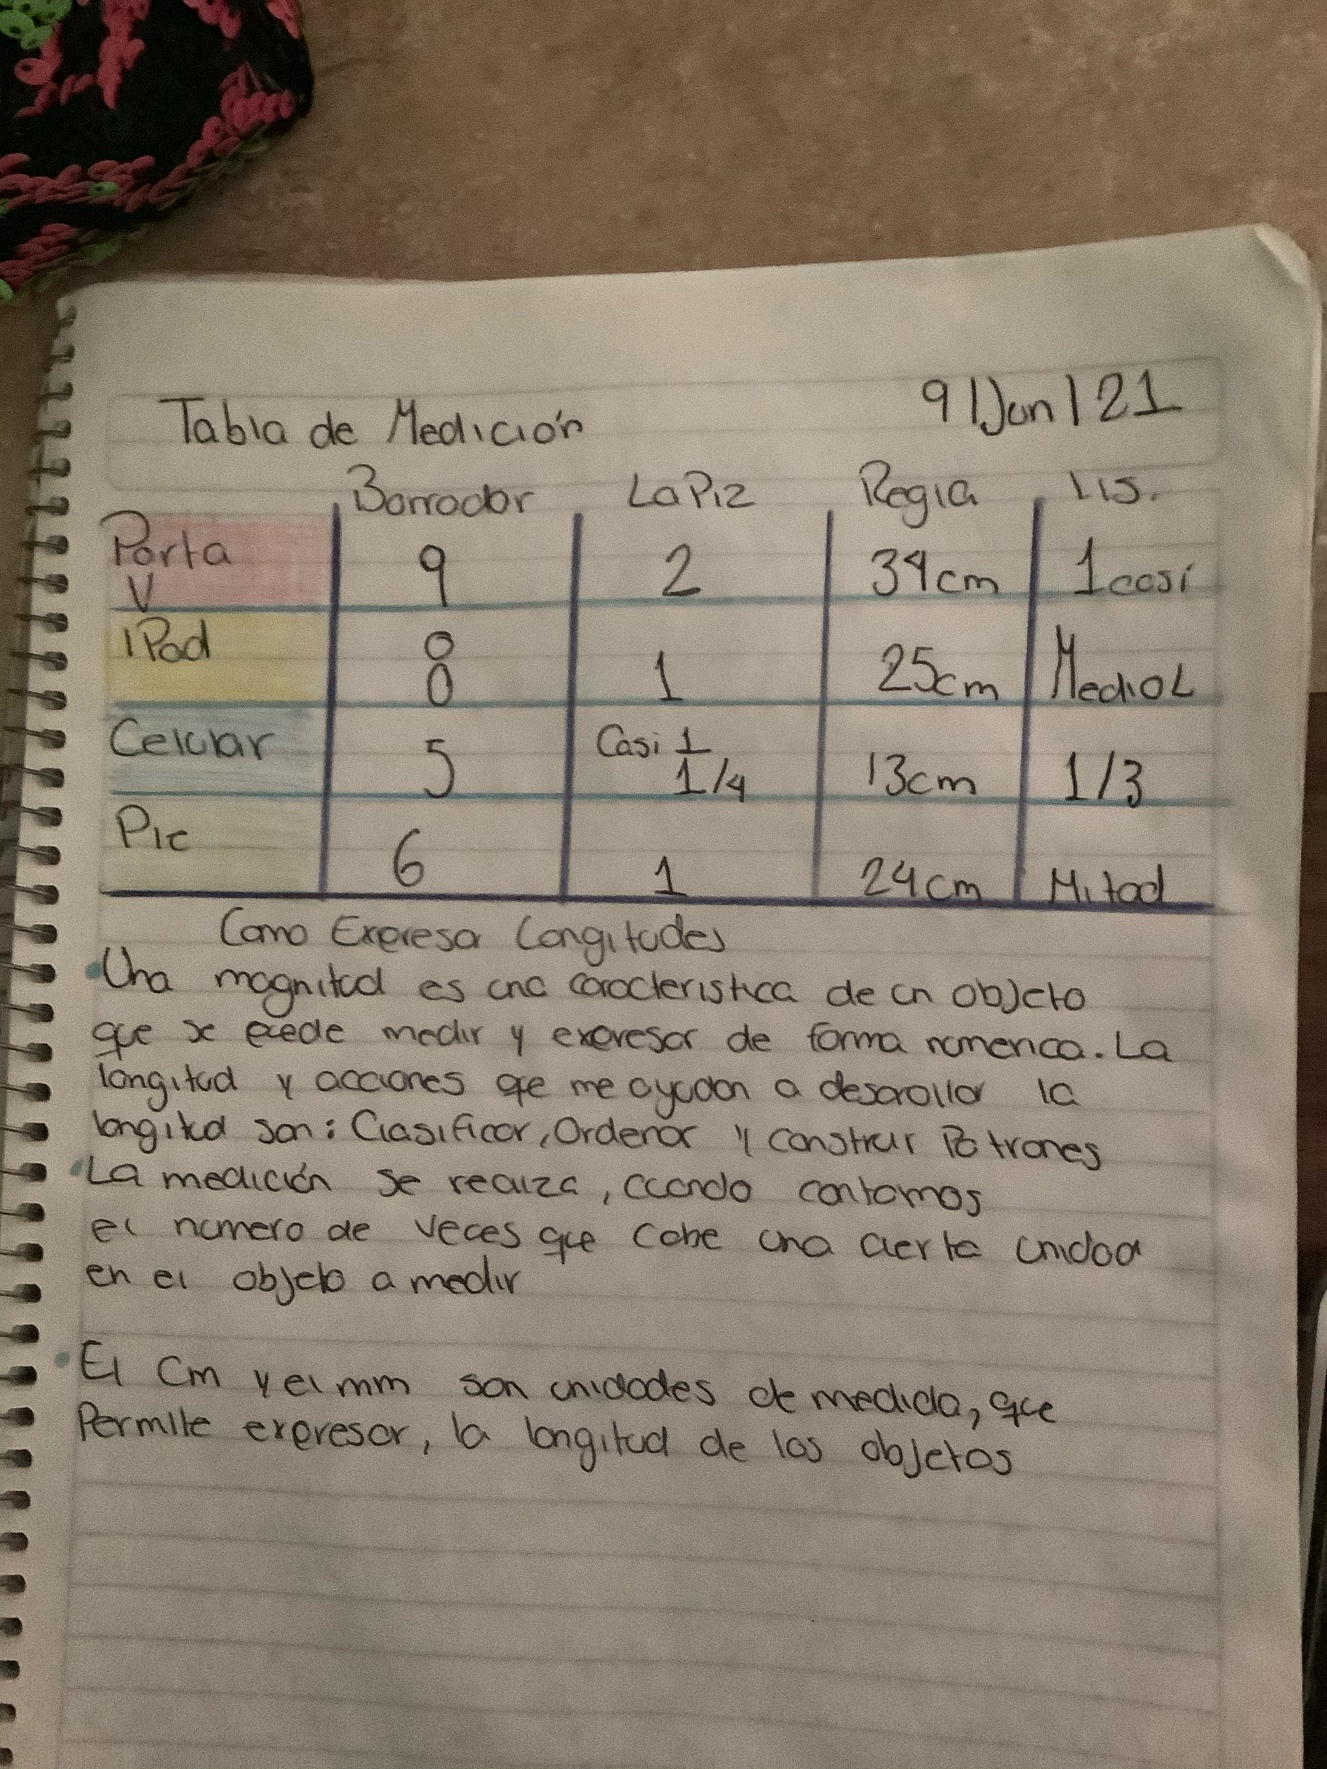 Tabla de Medición 9/Jun/21
Borrador LaPiz Regla Lis.
Porta V 9 2 34cm 1 casi
IPad 8 1 25cm Medio L
Celular 5 Casi 1 1/4 13cm 1/3
Pie 6 1 24cm Mitad
Como Expresa Longitudes
Una magnitud es una caracteristica de un objeto
que se puede medir y expresar de forma numerica. La
longitud y acciones que me ayudan a desarollar la
longitud son: Clasificar, Ordenar y construir Patrones
La medición se realiza, cuando contamos
el numero de veces que cabe una cierta unidad
en el objeto a medir
El Cm y el mm son unidades de medida, que
Permite expresar, la longitud de los objetos